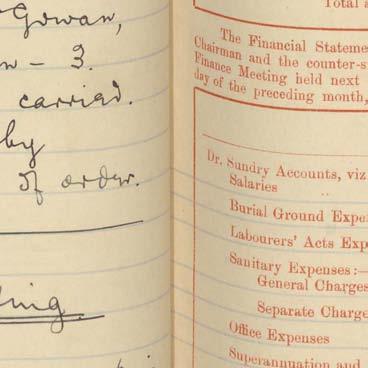 Gowan,
- 3.
carried.
by
of order.
Total
The Financial Stateme
Chairman and the counter-s
Finance Meeting held next
day of the preceding month,
Dr. Sundry Accounts, viz
Salaries
Burial Ground Expe
Labourers' Acts Exp
Sanitary Expenses:—
General Charges
Separate Charge
Office Expenses
Superannuation and